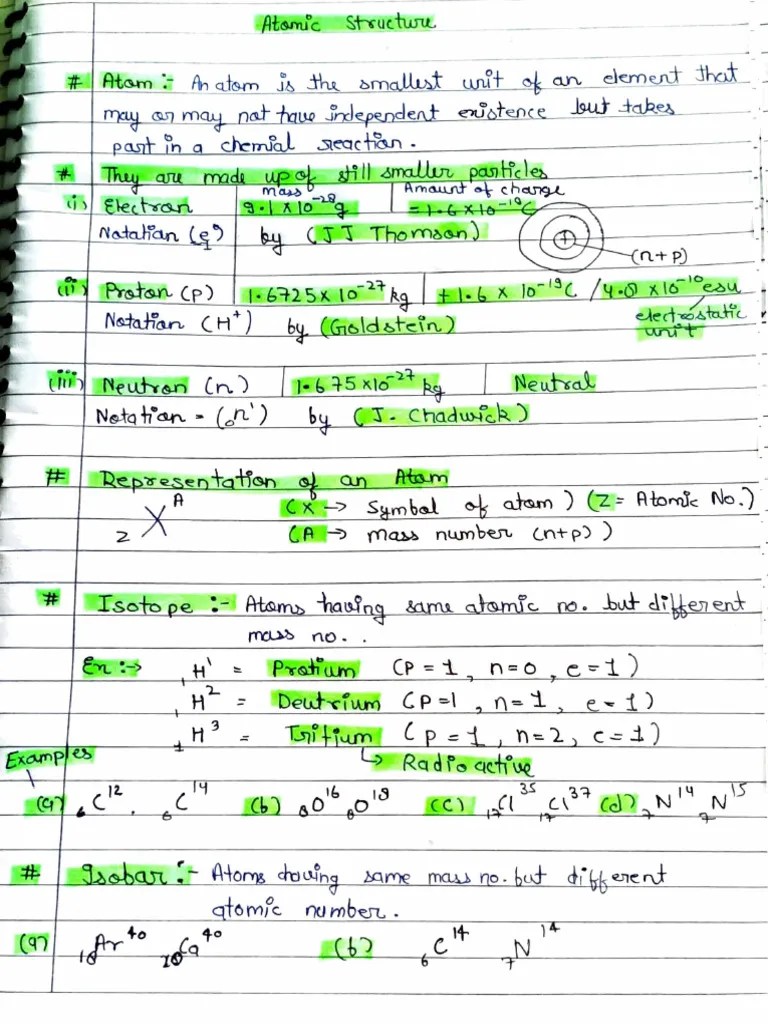 Atomic Structure
# Atom :- An atom is the smallest unit of an element that
may or may not have independent existence but takes
part in a chemial reaction.
# They are made up of still smaller particles
mass Amount of charge
(i) Electron 9.1 x 10⁻²⁸g = 1.6 x 10⁻¹⁹C
Notation (e⁰₋₁) by (J J Thomson)
+
(n+p)
(ii) Proton (p) 1.6725 x 10⁻²⁷ kg + 1.6 x 10⁻¹⁹C / 4.8 x 10⁻¹⁰ esu
Notation (H⁺) by (Goldstein) electrostatic
unit
(iii) Neutron (n) 1.675 x 10⁻²⁷ kg Neutral
Notation = (₀n¹) by (J. Chadwick)
# Representation of an Atom
A
X (X → Symbol of atom) (Z = Atomic No.)
Z (A → mass number (n+p))
# Isotope :- Atoms having same atomic no. but different
mass no..
En :→ ₁H¹ = Protium (P = 1, n=0, e=1)
₁H² = Deutrium (P=1, n=1, e=1)
₁H³ = Tritium (P=1, n=2, e=1)
Radioactive
Examples
(a) ₆C¹², ₆C¹⁴ (b) ₈O¹⁶ ₈O¹⁸ (c) ₁₇Cl³⁵ ₁₇Cl³⁷ (d) ₇N¹⁴ ₇N¹⁵
# Isobar :- Atoms having same mass no. but different
atomic number.
(a) ₁₈Ar⁴⁰ ₂₀Ca⁴⁰ (b) ₆C¹⁴ ₇N¹⁴